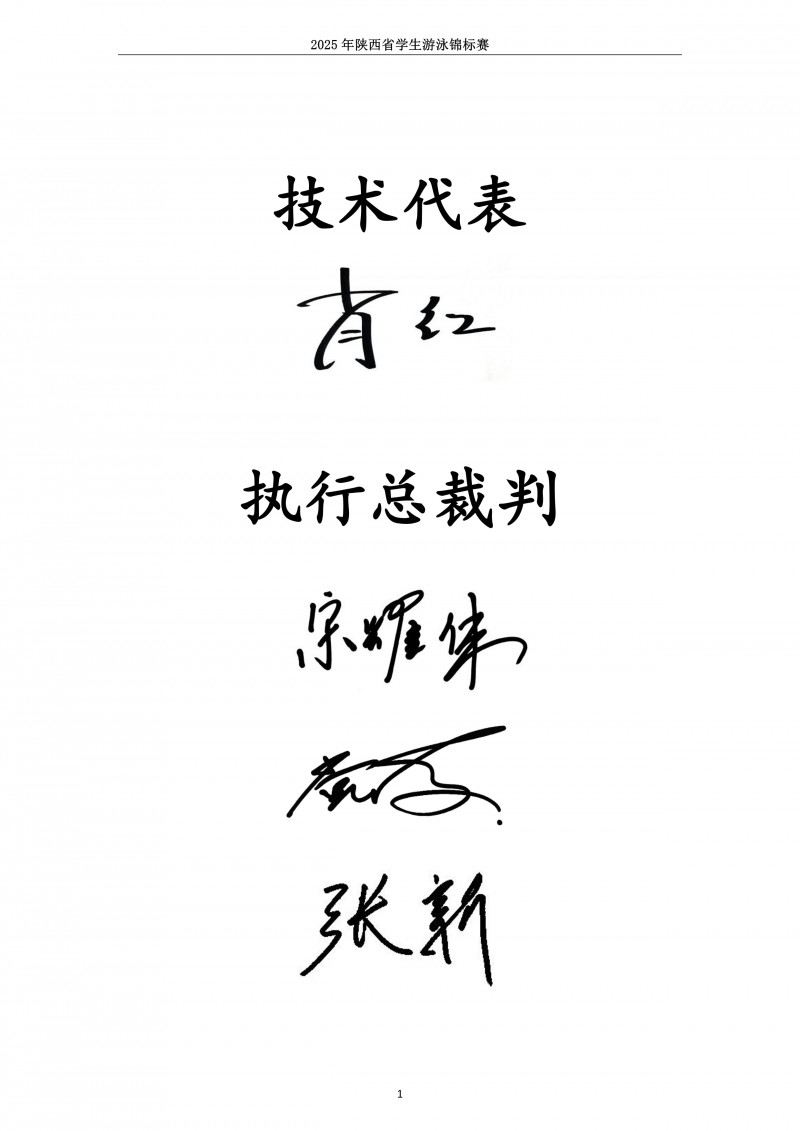 2025 年陕西省学生游泳锦标赛
技术代表
肖红
执行总裁判
宗耀伟
张新
1